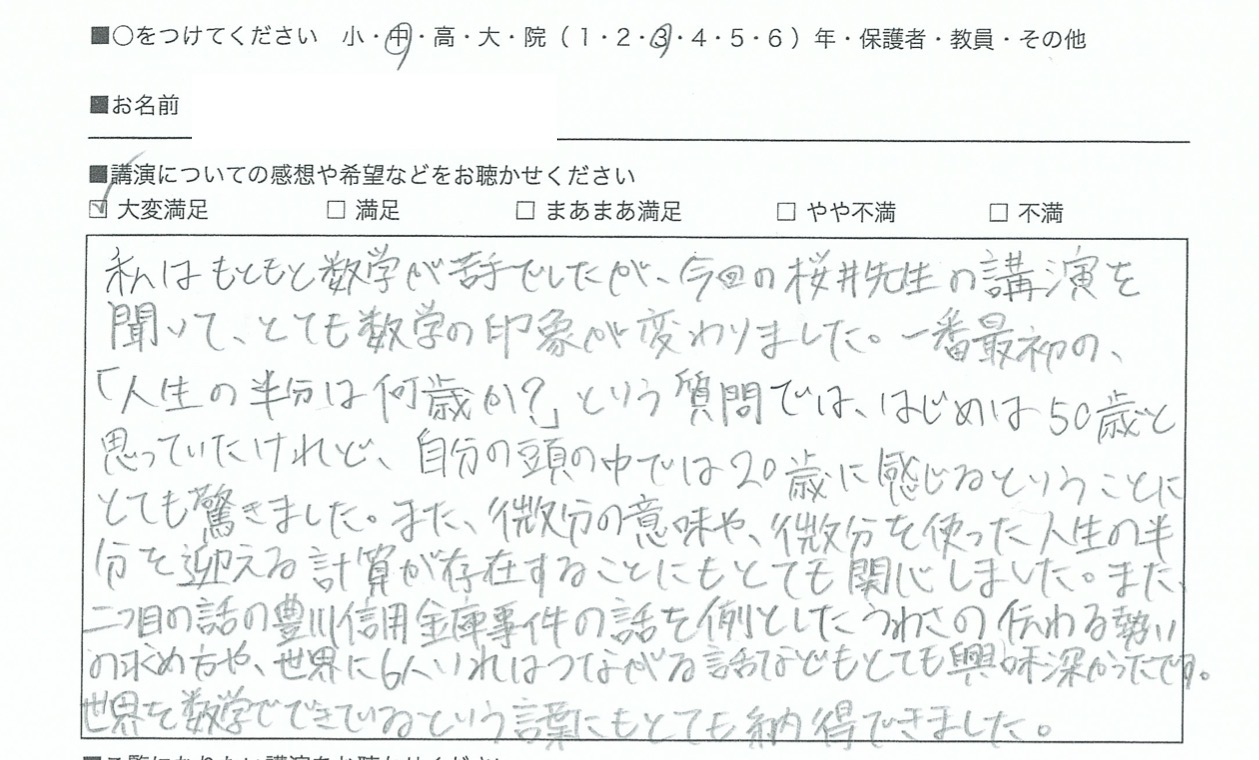 ■○をつけてください 小・中・高・大・院（1・2・3・4・5・6）年・保護者・教員・その他
■お名前
■講演についての感想や希望などをお聴かせください
☑ 大変満足 □ 満足 □ まあまあ満足 □ やや不満 □ 不満
私はもともと数学が苦手でしたが、今回の桜井先生の講演を
聞いて、とても数学の印象が変わりました。一番最初の、
「人生の半分は何歳か?」という質問では、はじめは50歳と
思っていたけれど、自分の頭の中では20歳に感じるということに
とても驚きました。また、微分の意味や、微分を使った人生の半
分を迎える計算が存在することにもとても関心しました。また、
二つ目の話の豊川信用金庫事件の話を例としたうわさの伝わる勢い
の求め方や、世界に6人いればつながる話などもとても興味深かったです。
世界を数学でできているという言葉にもとても納得できました。
■ご覧になりたい講演をお聴かせください